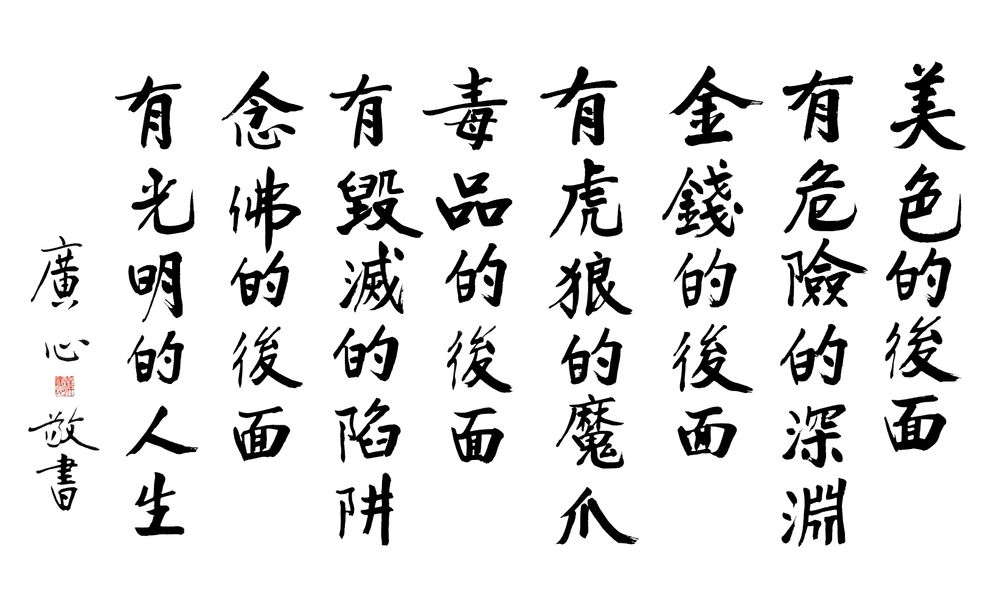 美色的後面
有危險的深淵
金錢的後面
有虎狼的魔爪
毒品的後面
有毀滅的陷阱
念佛的後面
有光明的人生
廣心敬書